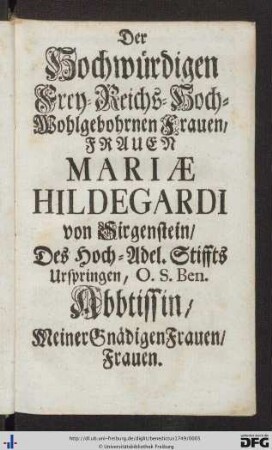 Der
Hochwürdigen
Frey-Reichs-Hoch-
Wohlgebohrnen Frauen/
FRAUEN
MARIÆ
HILDEGARDI
von Sirgenstein/
Des Hoch-Adel. Stiffts
Urspringen, O. S. Ben.
Abbtissin/
Meiner Gnädigen Frauen/
Frauen.
http://dl.ub.uni-freiburg.de/diglit/benedictus1749/0003
© Universitätsbibliothek Freiburg
DFG